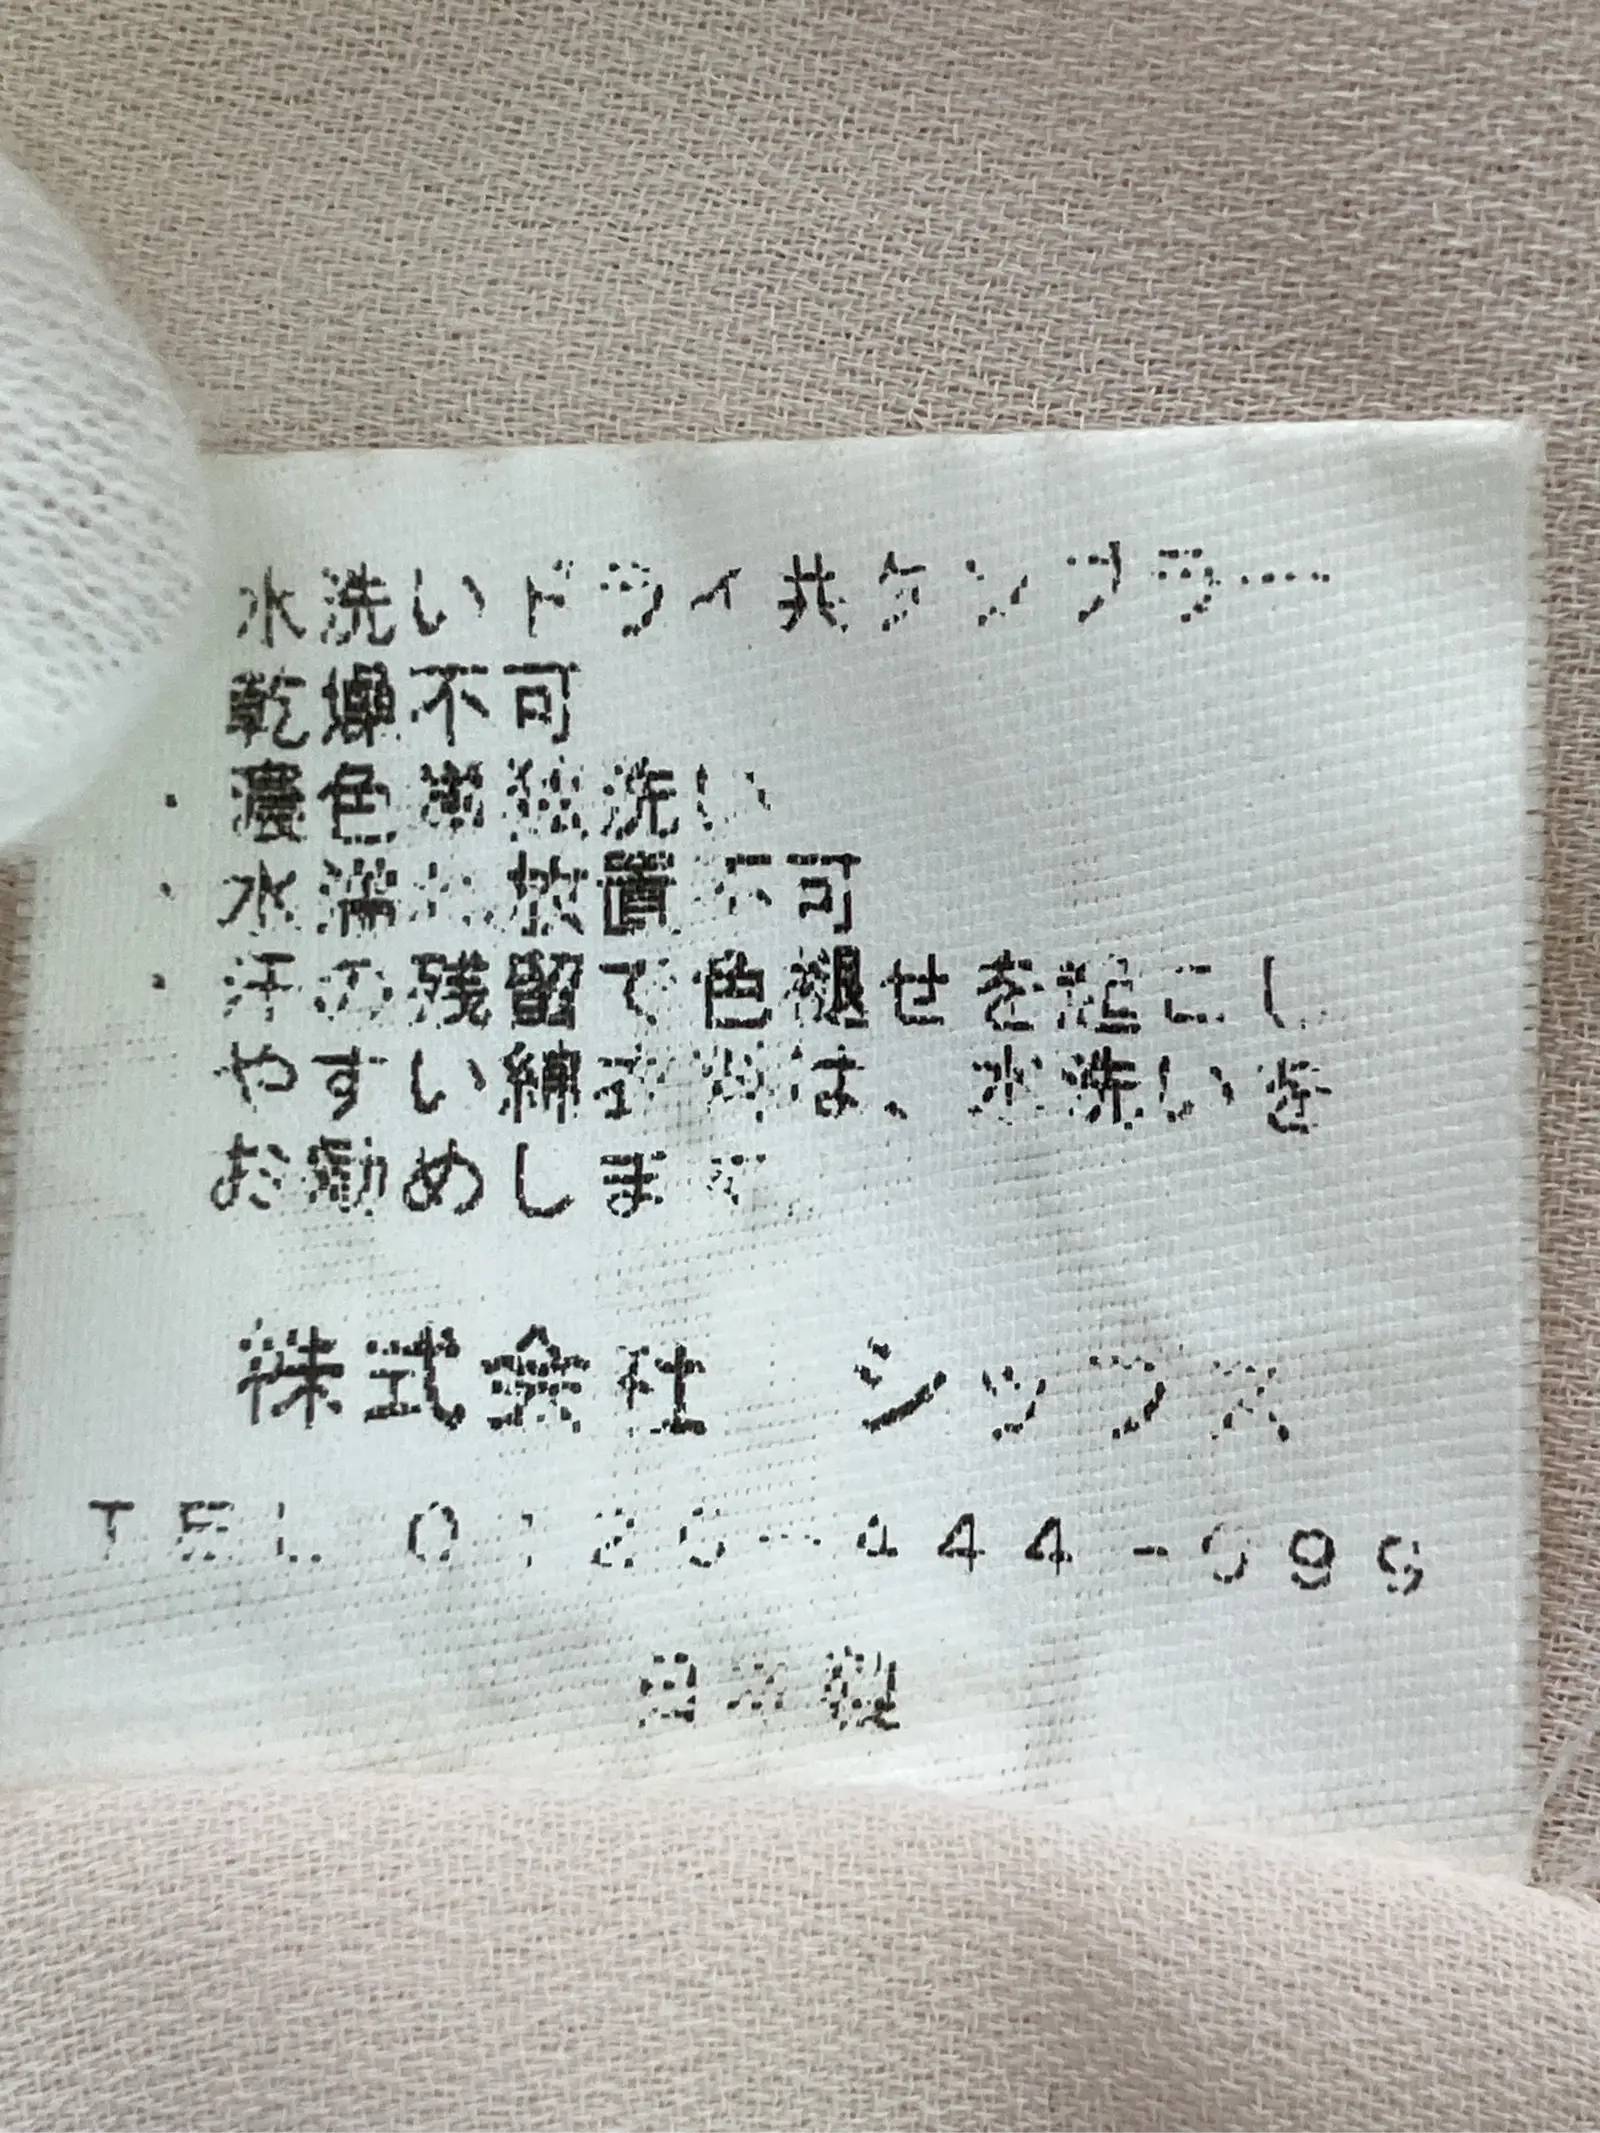 水洗いドライ共タンブラー
乾燥不可
・濃色単独洗い
・水濡れ放置不可
・汗の残留で色褪せを起こし
やすい綿素材は、水洗いを
お勧めします
株式会社 シップス
TEL 0120-444-099
日本製